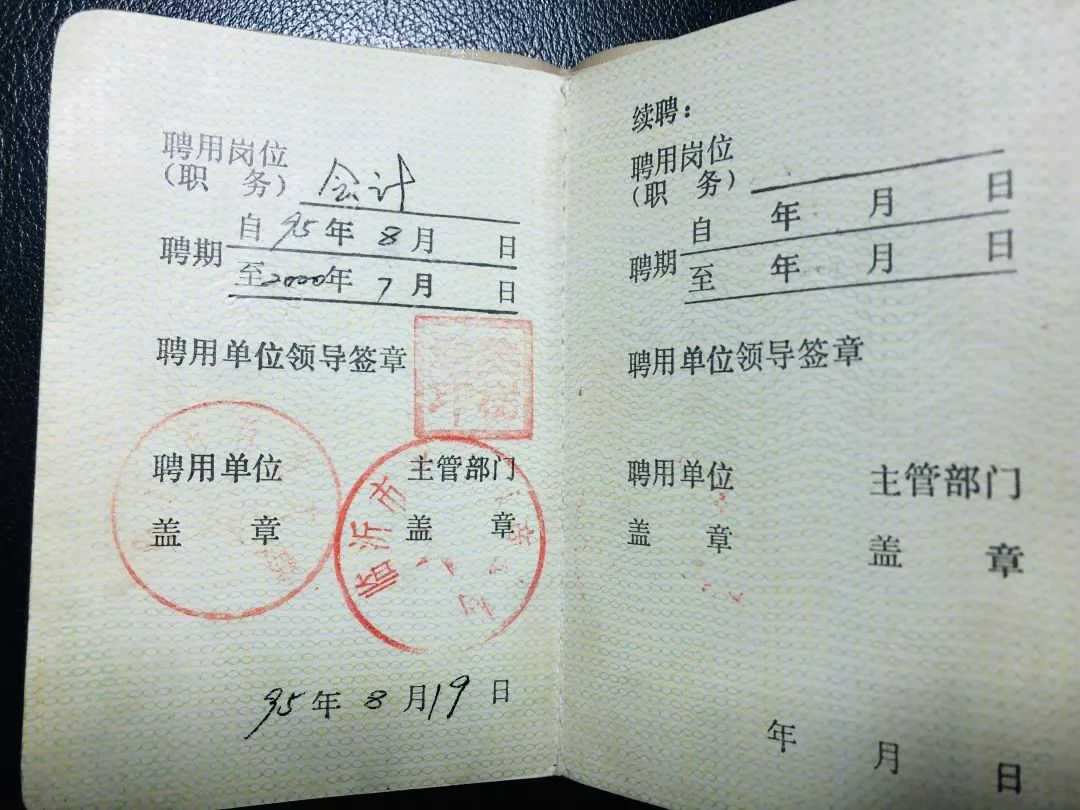 聘用岗位
(职 务) 会计
聘期 自 95年 8月 日
至2000年 7月 日
聘用单位领导签章
聘用单位 主管部门
盖 章 盖 章
临沂市
95年 8月19日
续聘：
聘用岗位
(职 务)
聘期 自 年 月 日
至 年 月 日
聘用单位领导签章
聘用单位 主管部门
盖 章 盖 章
年 月 日